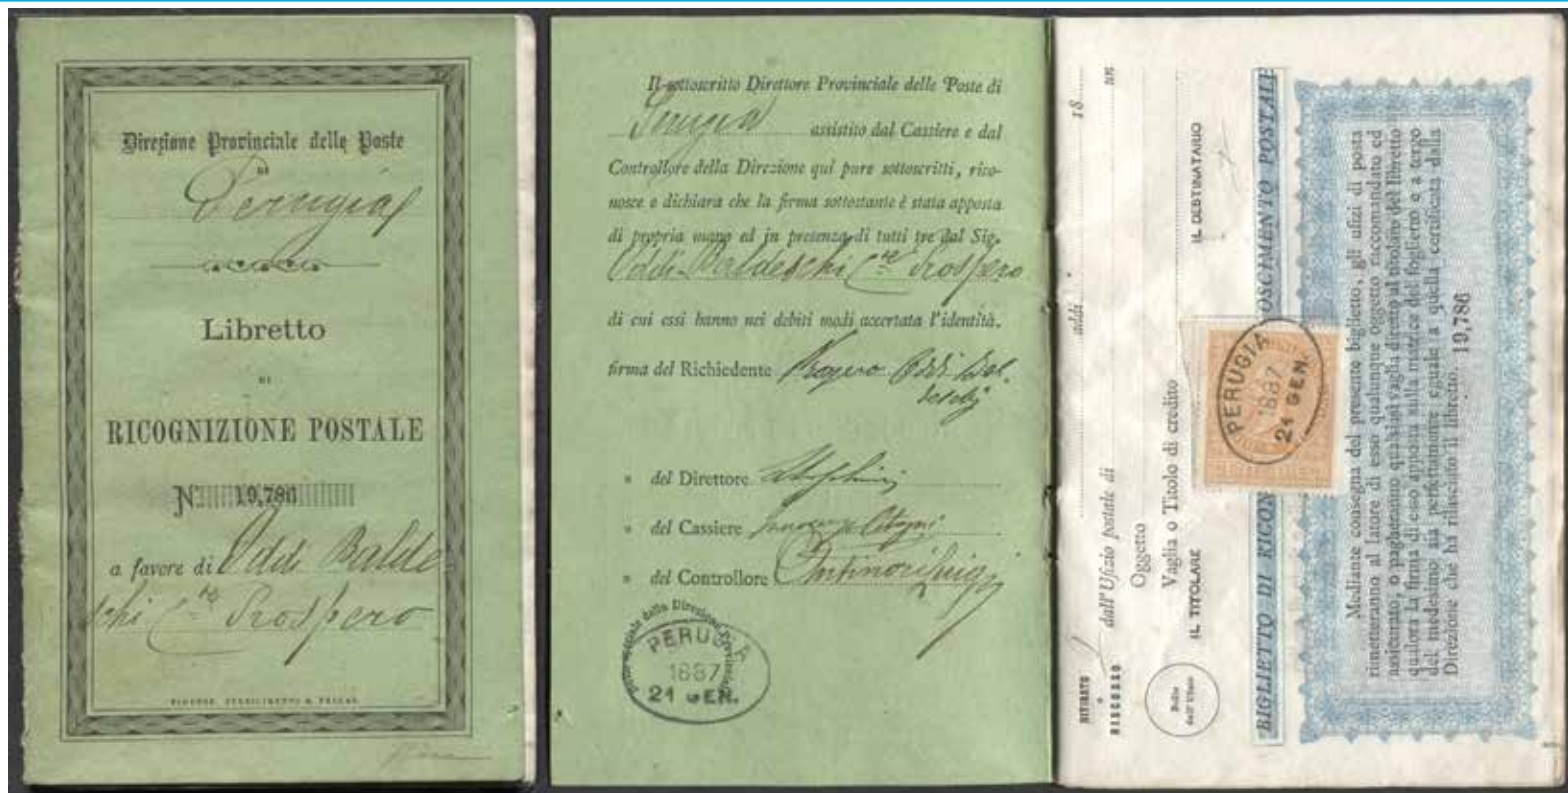 Direzione Provinciale delle Poste
DI
Perugia
Libretto
DI
RICOGNIZIONE POSTALE
N° 19,786
a favore di Oddi Balde
schi C.te Prospero
FIRENZE, STABILIMENTO G. PELLAS
Il sottoscritto Direttore Provinciale delle Poste di
Perugia assistito dal Cassiere e dal
Controllore della Direzione qui pure sottoscritti, rico-
nosce e dichiara che la firma sottostante è stata apposta
di propria mano ed in presenza di tutti tre dal Sig.
Oddi-Baldeschi C.te Prospero
di cui essi hanno nei debiti modi accertata l'identità.
firma del Richiedente Prospero Oddi Bal-
deschi
» del Direttore
» del Cassiere
» del Controllore Antinori Luigi
PERUGIA
1887
21 GEN.
RITIRATO
o
RISCOSSO
addì 18
dall'Ufizio postale di
Oggetto
Vaglia o Titolo di credito
IL TITOLARE
IL DESTINATARIO
Bollo
dell'Ufizio
BIGLIETTO DI RICONOSCIMENTO POSTALE
PERUGIA
1887
21 GEN.
Mediante consegna del presente biglietto, gli ufizi di posta
rimetteranno al latore di esso qualunque oggetto raccomandato ed
assicurato, o pagheranno qualsiasi vaglia diretto al titolare del libretto
qualora la firma di esso apposta sulla matrice del foglietto o a tergo
del medesimo sia perfettamente eguale a quella certificata dalla
Direzione che ha rilasciato il libretto. 19,786